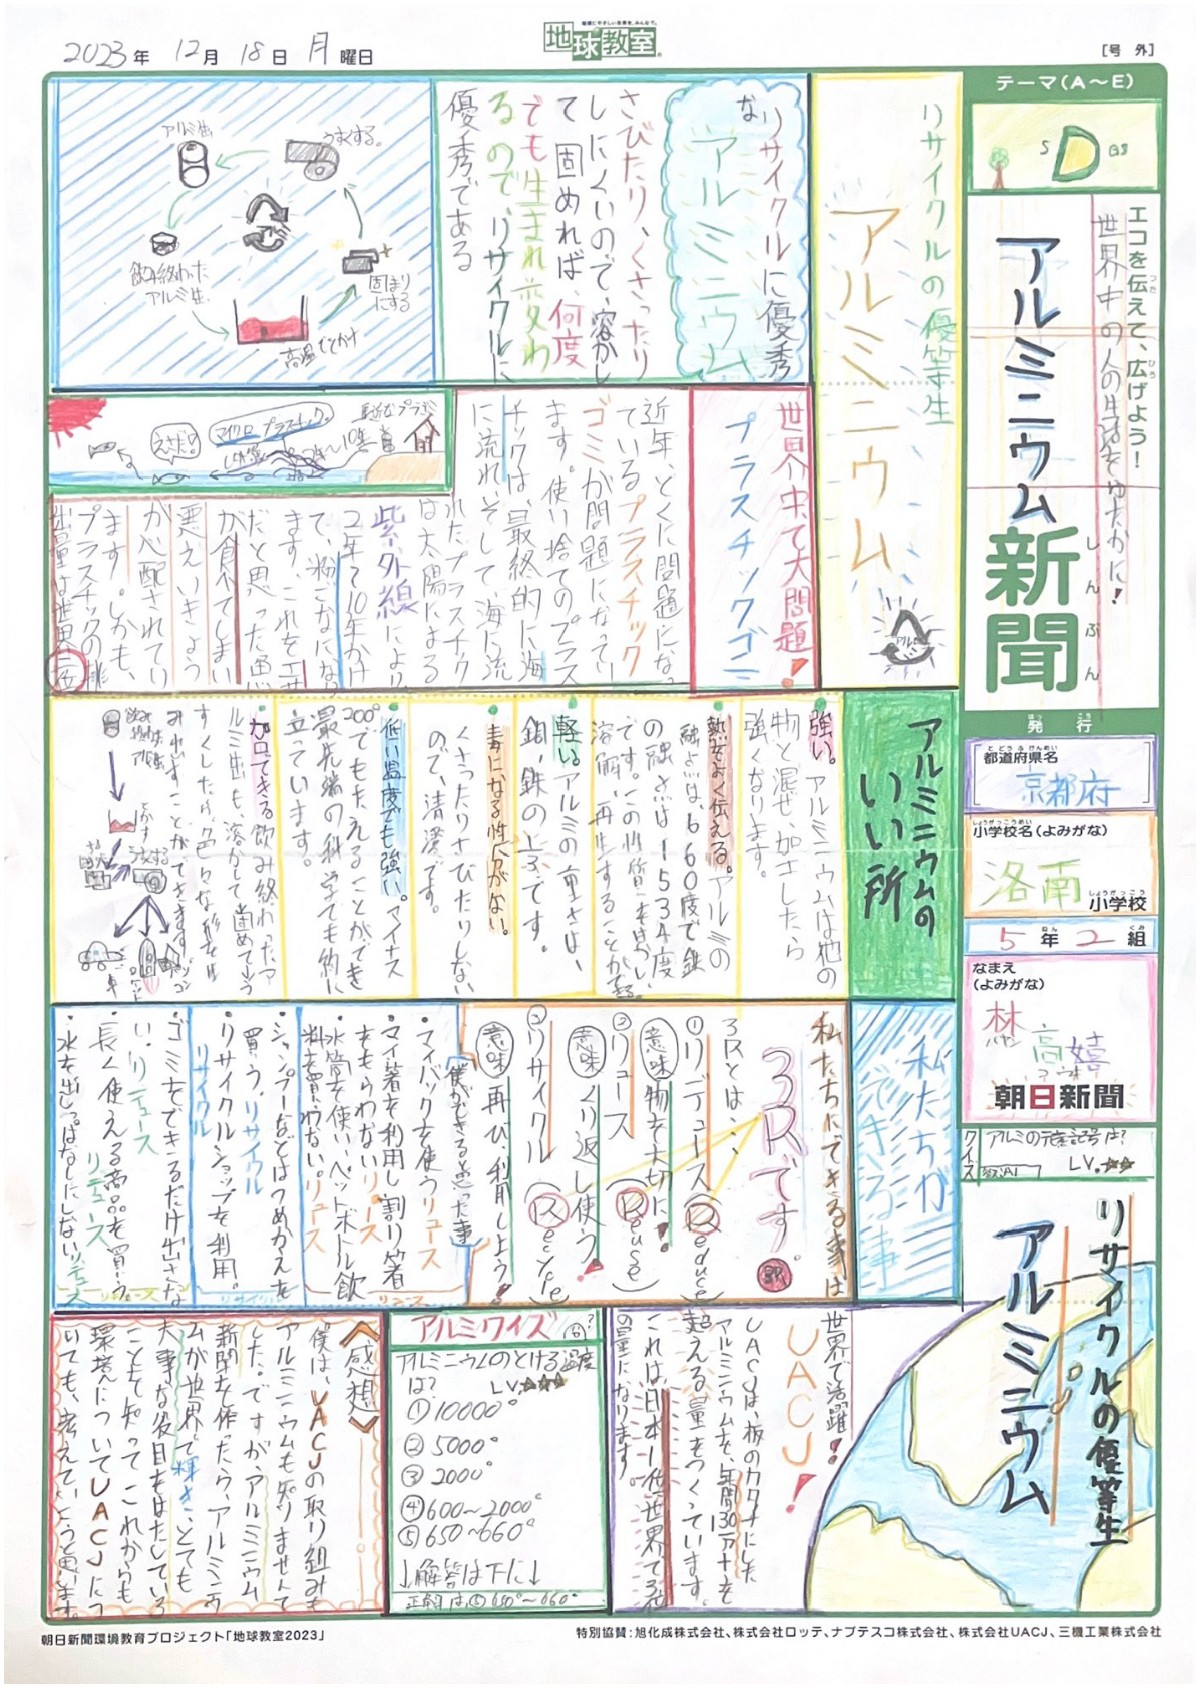 2023年 12月 18日 月曜日
環境にやさしい授業を、みんなで。
地球教室
[号 外]
テーマ(A～E)
S D GS
エコを伝えて、広げよう!
世界中の人の生活をゆたかに!
アルミニウム
新聞
しんぶん
発行
都道府県名
京都府
小学校名(よみがな)
洛南
小学校
5年2組
なまえ
(よみがな)
林
ハヤシ
高嬉
朝日新聞
クイズ
アルミの元素記号は?
LV.☆☆
答:Al
リサイクルの優等生
アルミニウム
リサイクルの優等生
アルミニウム
アルミ
リサイクルに優秀
な
アルミニウム
さびたり、くさったり
しにくいので、溶かし
て固めれば、何度
でも生まれ変わ
るので、リサイクルに
優秀である
アルミ缶
うすくする。
固まり
にする
高温でとかす
飲み終わった
アルミ缶
世界中で大問題!
プラスチックゴミ
近年、とくに問題になっ
ているプラスチック
ゴミが問題になってい
ます。使い捨てのプラス
チックは、最終的に海
に流れ、そして、海に流
れたプラスチック
は太陽による
紫外線により
2年~10年かけ
て、粉ごなになり
ます。これをエサ
だと思った魚
が食べてしまい
悪えいきょう
が心配されてい
ます。しかも、
プラスチックの排
出量は世界二位
マイクロプラスチック
えさだ!
身近なプラゴミ
アルミニウムの
いい所
強い。アルミニウムは他の
物と混ぜ、加工したら
強くなります。
熱をよく伝える。アルミの
融点は、660度で鉄
の融点は1534度
です。この性質を生かし、
溶解、再生することが可能。
軽い。アルミの重さは、
銅、鉄の1/3です。
毒になる性分がない。
くさったりさびたりしない
ので、清潔です。
低い温度でも強い。マイナス
200°でもたえることができ
最先端の科学でも約に
立っています。
加工できる 飲み終わったア
ルミ缶も、溶かして固めてうす
すくしたら、色々な形を生
み出すことができます。
飲み終わった
アルミ缶
とかす
固める
うすくする
車
ロケット
パソコン
私たちが
できる事
私たちにできる事は
3Rです。
3Rとは、、
①リデュース(Reduce)
意味 物を大切に!
②リユース(Reuse)
意味 くり返し使う。
③リサイクル(Recycle)
意味 再び、利用しよう!
僕ができると思った事
・マイバックを使うリユース
・マイ箸を利用し割り箸
をもらわないリユース
・水筒を使い、ペットボトル飲
料を買わない。リユース
・シャンプーなどはつめかえを
買う。リサイクル
・リサイクルショップを利用。
リサイクル
・ゴミをできるだけ出さな
い。リデュース
・長く使える商品を買う。
リデュース
・水を出しっぱなしにしない。リデュース
世界で活躍!
UACJ!
UACJは、板のカタチにした
アルミニウムを、年間130万トンを
超える量をつくっています。
これは日本1位、世界で3位
の量になります。
アルミクイズ
アルミニウムのとける温度
は? LV.☆☆☆
①10000°
②5000°
③2000°
④600~2000°
⑤650~660°
↓解答は下に↓
正解は、⑤650°~660°
〈感想〉
僕は、UACJの取り組みも
アルミニウムも知りませんで
した。ですが、アルミニウム
新聞を作ったら、アルミニウ
ムが世界で輝き、とても
大事な役目をはたしている
ことを知って、これからも
環境についてUACJにつ
いても、考えていこうと思います。
朝日新聞環境教育プロジェクト「地球教室2023」
特別協賛:旭化成株式会社、株式会社ロッテ、ナブテスコ株式会社、株式会社UACJ、三機工業株式会社